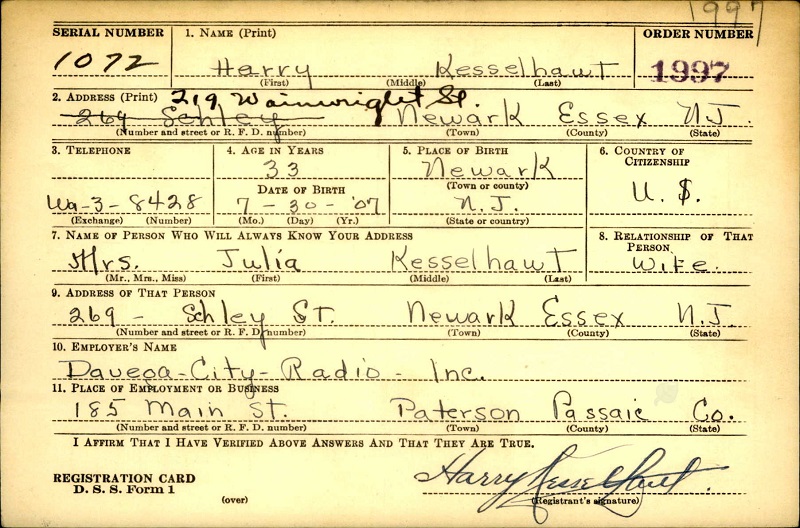 1997
SERIAL NUMBER 1. NAME (Print) ORDER NUMBER
1072 Harry Kesselhawt 1997
(First) (Middle) (Last)
2. ADDRESS (Print) 219 Wainwright St.
269 Schley Newark Essex N.J.
(Number and street or R. F. D. number) (Town) (County) (State)
3. TELEPHONE 4. AGE IN YEARS 5. PLACE OF BIRTH 6. COUNTRY OF CITIZENSHIP
33 Newark
DATE OF BIRTH (Town or county) U. S.
Wa-3-8428 7-30-'07 N.J.
(Exchange) (Number) (Mo.) (Day) (Yr.) (State or country)
7. NAME OF PERSON WHO WILL ALWAYS KNOW YOUR ADDRESS 8. RELATIONSHIP OF THAT PERSON
Mrs. Julia Kesselhawt Wife.
(Mr., Mrs., Miss) (First) (Middle) (Last)
9. ADDRESS OF THAT PERSON
269 - Schley St. Newark Essex N.J.
(Number and street or R. F. D. number) (Town) (County) (State)
10. EMPLOYER'S NAME
Davega-City-Radio - Inc.
11. PLACE OF EMPLOYMENT OR BUSINESS
185 Main St. Paterson Passaic Co.
(Number and street or R. F. D. number) (Town) (County) (State)
I AFFIRM THAT I HAVE VERIFIED ABOVE ANSWERS AND THAT THEY ARE TRUE.
REGISTRATION CARD Harry Kesselhaut.
D. S. S. Form 1 (over) (Registrant's signature)